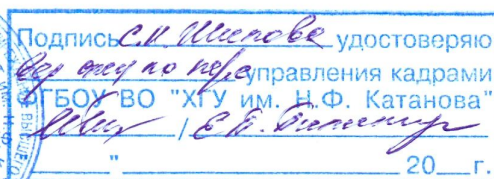 Подпись С.И. Шилова удостоверяю
вед. спец. по перс. управления кадрами
ФГБОУ ВО "ХГУ им. Н.Ф. Катанова"
/ Е.П.
" 20 г.